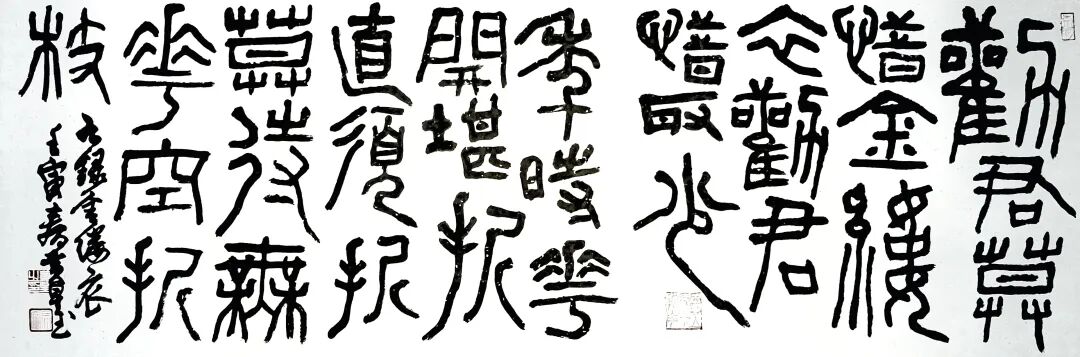 勸君莫
惜金縷
衣勸君
惜取少
年時華
開堪折
直須折
莫待無
華空折
枝
右録金縷衣
壬寅春